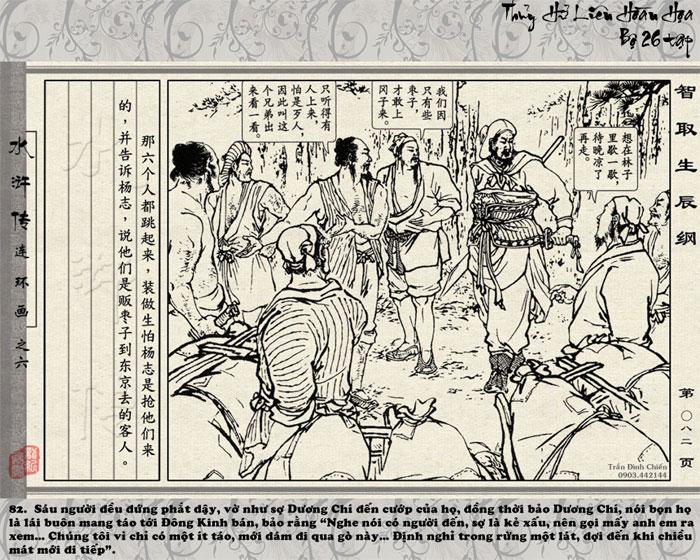 Thủy Hử Liên Hoàn Họa
Bộ 26 tập
智取生辰纲
第〇八二页
想在林子
里歇一歇，
待晚凉了
再走。
我们因
只有些
枣子，
才敢上
冈子来。
只听得有
人上来，
怕是歹人，
因此叫这
个兄弟出
来看一看。
那六个人都跳起来，装做生怕杨志是抢他们来
的，并告诉杨志，说他们是贩枣子到东京去的客人。
水浒传连环画之六
Trần Đình Chiến
0903.442144
82. Sáu người đều đứng phắt dậy, vờ như sợ Dương Chí đến cướp của họ, đồng thời bảo Dương Chí, nói bọn họ
là lái buôn mang táo tới Đông Kinh bán, bảo rằng “Nghe nói có người đến, sợ là kẻ xấu, nên gọi mấy anh em ra
xem... Chúng tôi vì chỉ có một ít táo, mới dám đi qua gò này... Định nghỉ trong rừng một lát, đợi đến khi chiều
mát mới đi tiếp”.